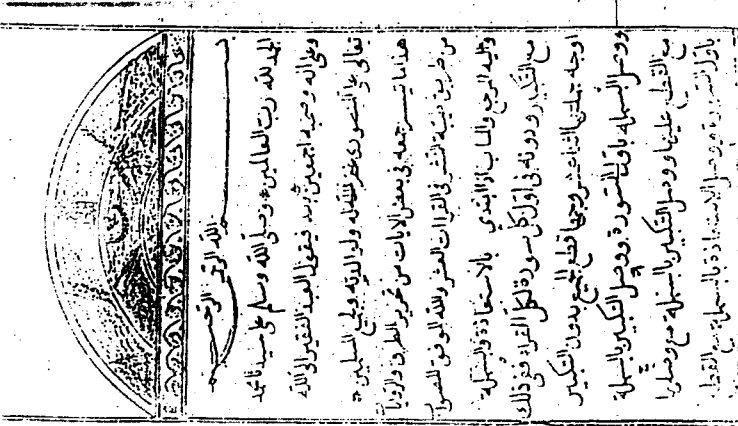 بسم الله الرحمن الرحيم
الحمد لله رب العالمين وصلى الله وسلم على سيدنا محمد
وعلى اله وصحبه اجمعين وبعد فيقول العبد الفقير الى الله
تعالى على المنصوري غفر الله له ولوالديه ولجميع المسلمين
هذا ما تيسر جمعه في بعض الايات من تحرير الطرق والروايات
من طريق طيبة النشر في القراات العشر والله الموفق للصواب
واليه المرجع والمآب اذا ابتدئ بالاستعاذة والبسملة
مع التكبير ودونه في اول كل سورة لكل القراء ففي ذلك
اوجه جملتها اثنا عشر وجها قطع الجميع بدون التكبير
ووصل البسملة باول السورة ووصل التكبير بالبسملة
مع القطع عليها ووصل التكبير بالبسملة مع وصلها
باول السورة ووصل الاستعاذة بالبسملة مع القطع